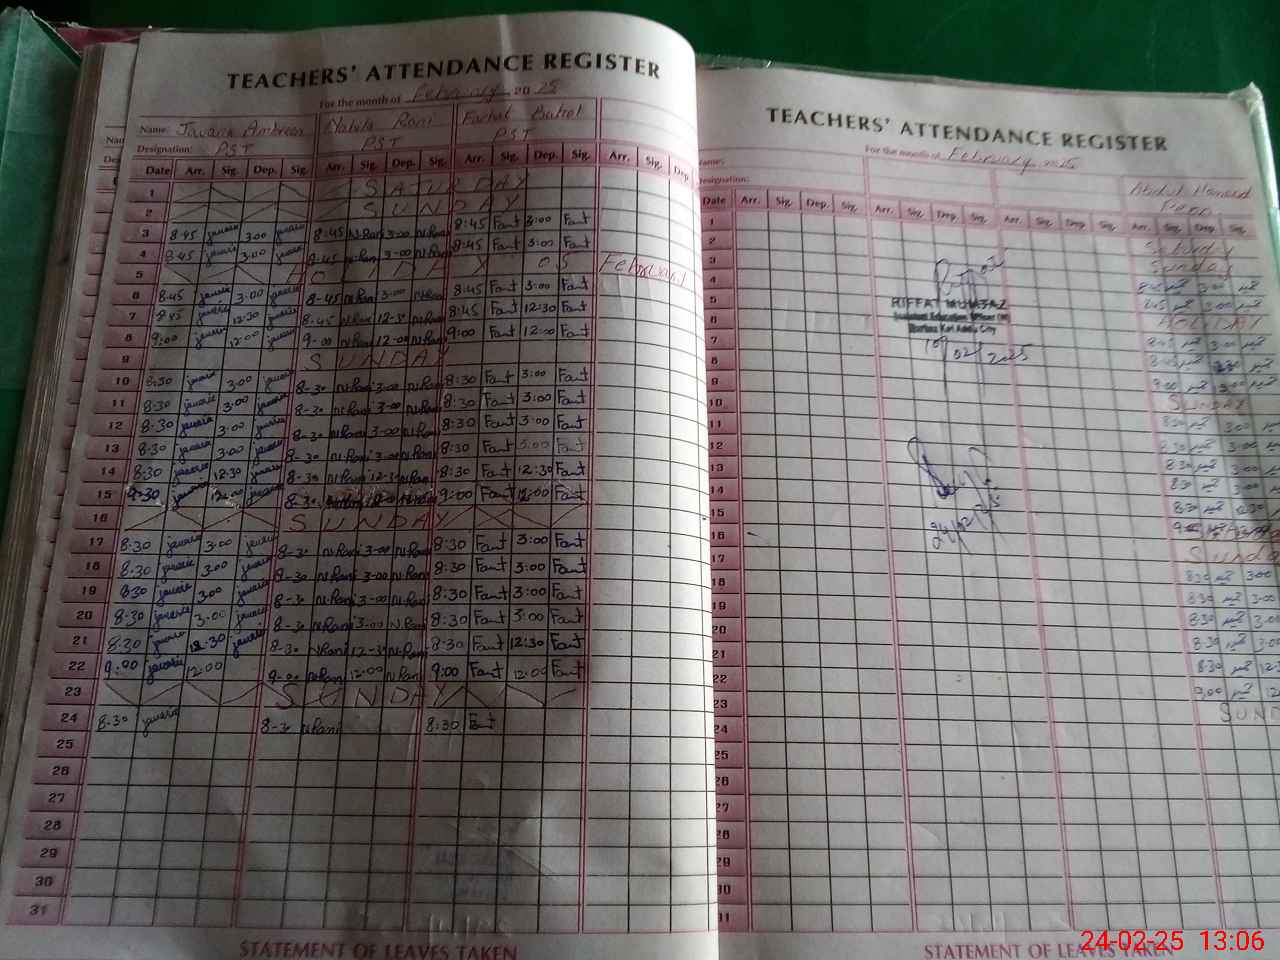 TEACHERS' ATTENDANCE REGISTER
For the month of February 2025
Name: Javaria Ambreen Nabila Rani Farhat Batool
Designation: PST PST PST
Date Arr. Sig. Dep. Sig. Arr. Sig. Dep. Sig. Arr. Sig. Dep. Sig. Arr. Sig. Dep.
1 SATURDAY
2 SUNDAY
3 8:45 javaria 3:00 javaria 8:45 N.Rani 3-00 N.Rani 8:45 Fart 3:00 Fart
4 8:45 javaria 3:00 javaria 8:45 N.Rani 3-00 N.Rani 8:45 Fart 3:00 Fart
5 HOLIDAY 05 February
6 8:45 javaria 3:00 javaria 8-45 N.Rani 3-00 N.Rani 8:45 Fart 3:00 Fart
7 8:45 javaria 12:30 javaria 8-45 N.Rani 12-30 N.Rani 8:45 Fart 12:30 Fart
8 9:00 javaria 12:00 javaria 9-00 N.Rani 12-00 N.Rani 9:00 Fart 12:00 Fart
9 SUNDAY
10 8:30 javaria 3:00 javaria 8-30 N.Rani 3-00 N.Rani 8:30 Fart 3:00 Fart
11 8:30 javaria 3:00 javaria 8-30 N.Rani 3-00 N.Rani 8:30 Fart 3:00 Fart
12 8:30 javaria 3:00 javaria 8-30 N.Rani 3-00 N.Rani 8:30 Fart 3:00 Fart
13 8:30 javaria 3:00 javaria 8-30 N.Rani 3-00 N.Rani 8:30 Fart 3:00 Fart
14 8:30 javaria 12:30 javaria 8-30 N.Rani 12-30 N.Rani 8:30 Fart 12:30 Fart
15 12:00 javaria 8-30 9:00 Fart 12:00 Fart
16 SUNDAY
17 8:30 javaria 3:00 javaria 8-30 N.Rani 3-00 N.Rani 8:30 Fart 3:00 Fart
18 8:30 javaria 3:00 javaria 8-30 N.Rani 3-00 N.Rani 8:30 Fart 3:00 Fart
19 8:30 javaria 3:00 javaria 8-30 N.Rani 3-00 N.Rani 8:30 Fart 3:00 Fart
20 8:30 javaria 3:00 javaria 8-30 N.Rani 3-00 N.Rani 8:30 Fart 3:00 Fart
21 8:30 javaria 12:30 javaria 8-30 N.Rani 12-30 N.Rani 8:30 Fart 12:30 Fart
22 9:00 javaria 12:00 9-00 N.Rani 12:00 N.Rani 9:00 Fart 12:00 Fart
23 SUNDAY
24 8-30 javaria 8-30 N.Rani 8:30 Fart
25
26
27
28
29
30
31
STATEMENT OF LEAVES TAKEN
TEACHERS' ATTENDANCE REGISTER
For the month of February 2025
Name:
Designation: Abdul Hameed
Peon
Date Arr. Sig. Dep. Sig. Arr. Sig. Dep. Sig. Arr. Sig. Dep. Sig. Arr. Sig. Dep. Sig.
1 Saturday
2 Sunday
3 8:45 3:00
4 8:45 3:00
5 HOLIDAY
RIFFAT MUMTAZ
Assistant Education Officer (W)
Markaz Kot Addu City
10/02/2025
6 8:45 3:00
7 8:45
8 9:00
9 SUNDAY
10 8:30 3:00
11 8:30 3:00
12 8:30 3:00
13 8:30 3:00
14 8:30 12:30
15
24/02/25
16 SUNDAY
17 8:30 3:00
18 8:30 3:00
19 8:30 3:00
20 8:30 3:00
21 8:30
22 9:00
23 SUND
24
25
26
27
28
29
30
31
STATEMENT OF LEAVES TAKEN
24-02-25 13:06